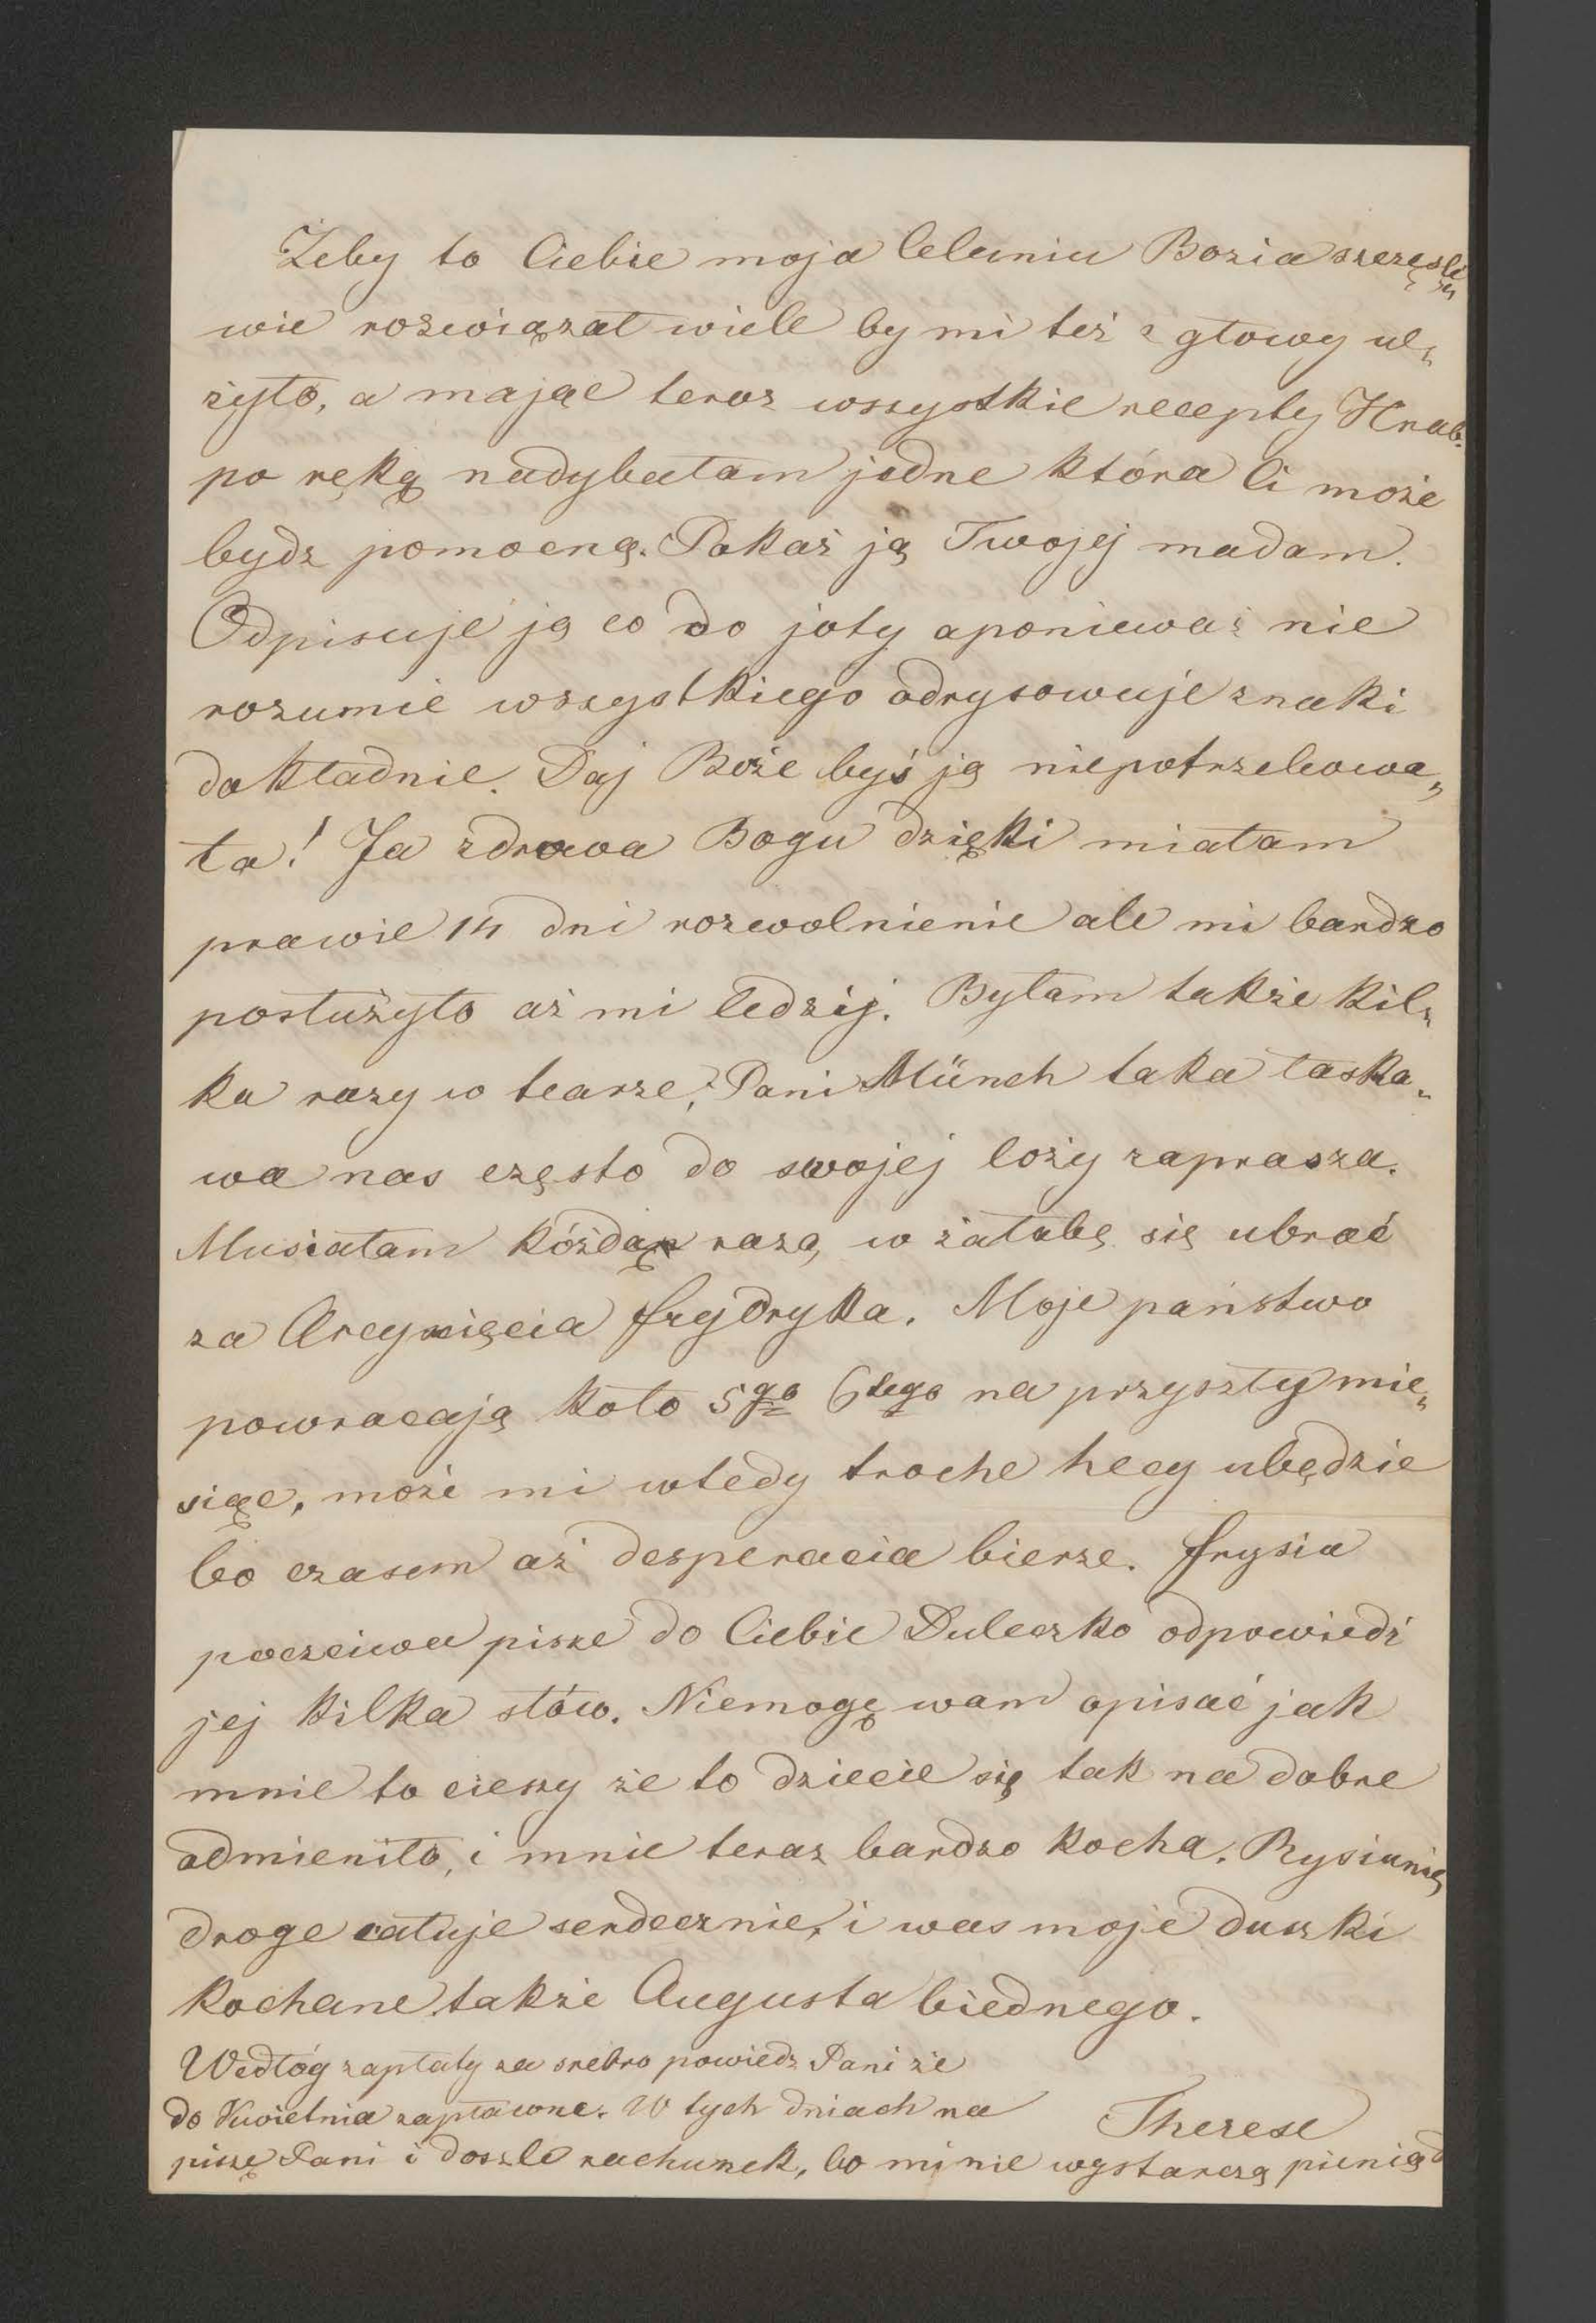 Żeby to Ciebie moja Celuniu Bozia szczęśli„
wie rozwiązał wiele by mi też z głowy ul„
żyło, a mając teraz wszystkie recepty Hrab.
po ręką nadybałam jedne która Ci może
bydz pomocną. Pokaż ją Twojej madam.
Odpisuje ją co do joty aponieważ nie
rozumie wszystkiego odrysowuje znaki
dokładnie. Daj Boże byś ją niepotrzebowa„
ła! Ja zdrowa Bogu dzięki miałam
prawie 14 dni rozwolnienie ale mi bardzo
posłużyło aż mi ledzij. Byłam także kil„
ka razy w tearze, Pani Münch taka łaska„
wa nas często do swojej loży zaprasza.
Musiałam kóżdą razą w żałobę się ubrać
za Arcyxięcia frydryka. Moje państwo
powracają koło 5go 6tego na przyszły mie„
siąc, może mi wtedy troche hecy ubędzie
bo czasem aż desperacia bierze. frysia
poczciwa pisze do Ciebie Duleczko odpowiedź
jej kilka słów. Niemogę wam opisać jak
mnie to cieszy że to dziecie się tak na dobre
odmieniło, i mnie teraz bardzo kocha. Rysiunię
droge całuje serdecznie, i was moje duszki
kochane także Augusta biednego.
Wedłóg zapłaty za srebro powiedz Pani że
do Kwietnia zapłacone. W tych dniach na
piszę Pani i doszle rachunek, bo mi nie wystarczą pieniąd
Therese